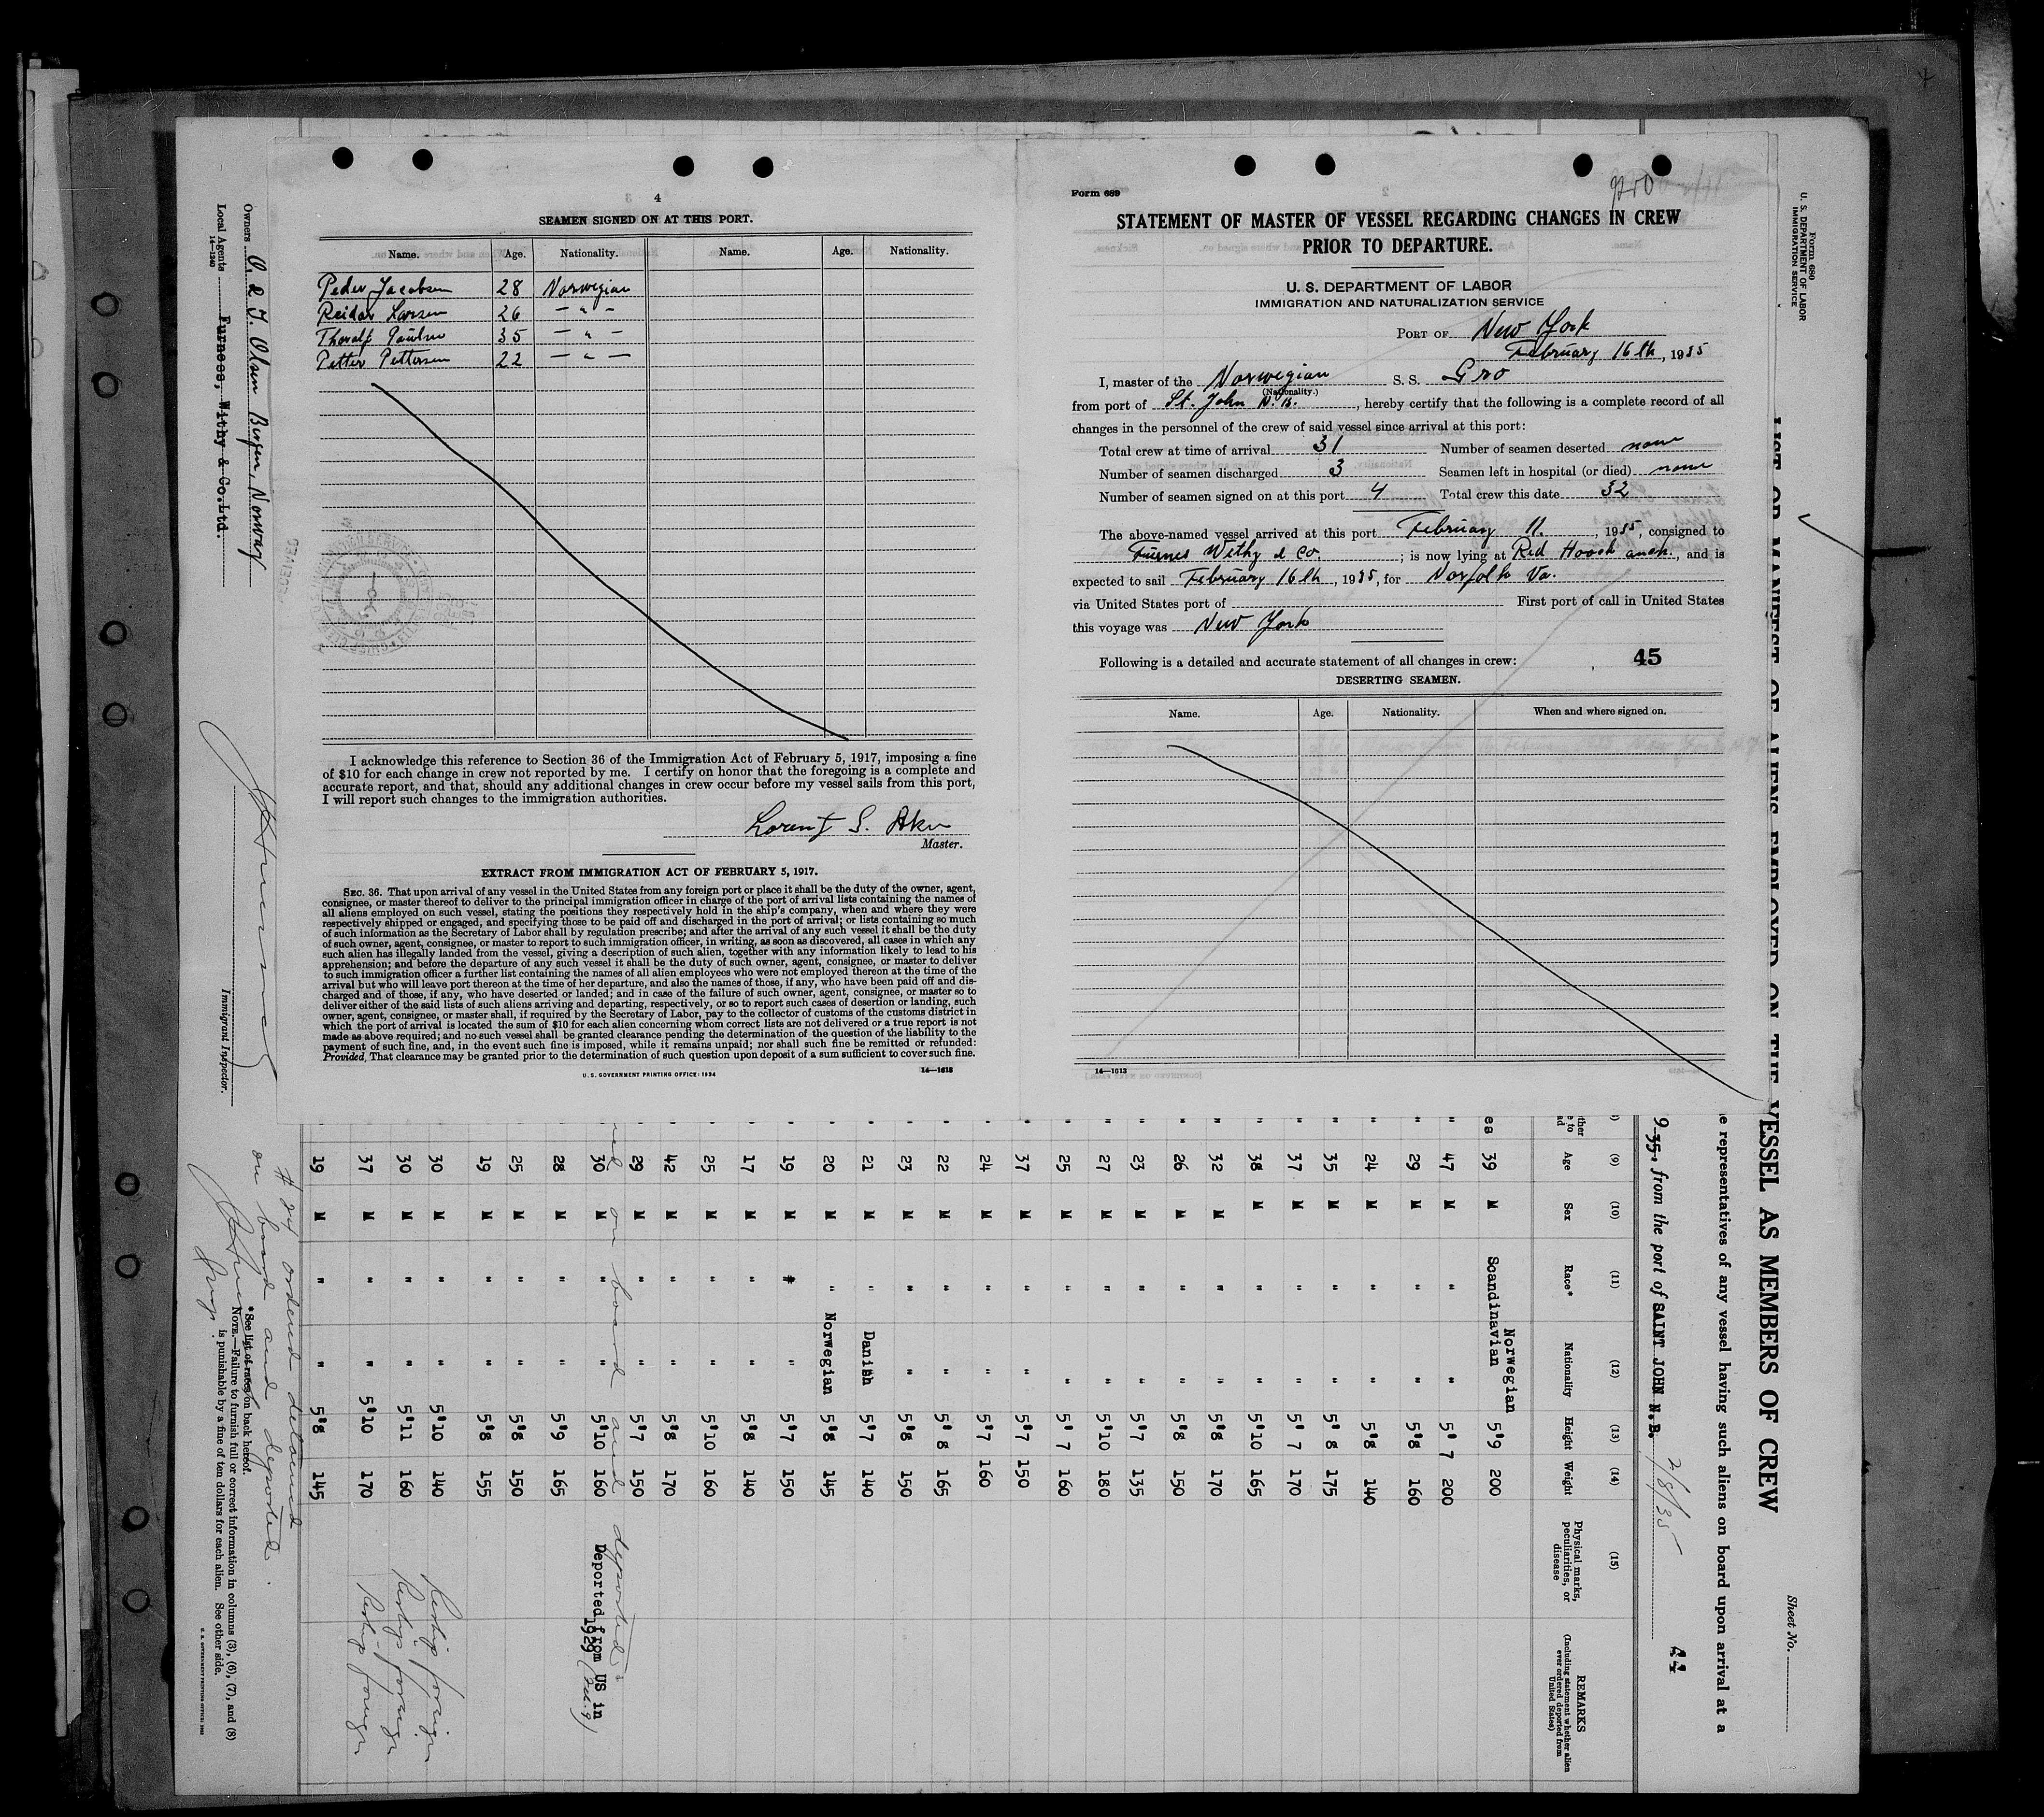 4
SEAMEN SIGNED ON AT THIS PORT.
Name. Age. Nationality. Name. Age. Nationality.
Peder Jacobsen 28 Norwegian
Reidar Larsen 26 — " —
Thoralf 35 — " —
Petter Pettersen 22 — " —
I acknowledge this reference to Section 36 of the Immigration Act of February 5, 1917, imposing a fine
of $10 for each change in crew not reported by me. I certify on honor that the foregoing is a complete and
accurate report, and that, should any additional changes in crew occur before my vessel sails from this port,
I will report such changes to the immigration authorities.
Lorent S.
Master.
EXTRACT FROM IMMIGRATION ACT OF FEBRUARY 5, 1917.
SEC. 36. That upon arrival of any vessel in the United States from any foreign port or place it shall be the duty of the owner, agent,
consignee, or master thereof to deliver to the principal immigration officer in charge of the port of arrival lists containing the names of
all aliens employed on such vessel, stating the positions they respectively hold in the ship's company, when and where they were
respectively shipped or engaged, and specifying those to be paid off and discharged in the port of arrival; or lists containing so much
of such information as the Secretary of Labor shall by regulation prescribe; and after the arrival of any such vessel it shall be the duty
of such owner, agent, consignee, or master to report to such immigration officer, in writing, as soon as discovered, all cases in which any
such alien has illegally landed from the vessel, giving a description of such alien, together with any information likely to lead to his
apprehension; and before the departure of any such vessel it shall be the duty of such owner, agent, consignee, or master to deliver
to such immigration officer a further list containing the names of all alien employees who were not employed thereon at the time of the
arrival but who will leave port thereon at the time of her departure, and also the names of those, if any, who have been paid off and dis-
charged and of those, if any, who have deserted or landed; and in case of the failure of such owner, agent, consignee, or master so to
deliver either of the said lists of such aliens arriving and departing, respectively, or so to report such cases of desertion or landing, such
owner, agent, consignee, or master shall, if required by the Secretary of Labor, pay to the collector of customs of the customs district in
which the port of arrival is located the sum of $10 for each alien concerning whom correct lists are not delivered or a true report is not
made as above required; and no such vessel shall be granted clearance pending the determination of the question of the liability to the
payment of such fine, and, in the event such fine is imposed, while it remains unpaid; nor shall such fine be remitted or refunded:
Provided, That clearance may be granted prior to the determination of such question upon deposit of a sum sufficient to cover such fine.
U. S. GOVERNMENT PRINTING OFFICE: 1934 14—1613
Form 689
STATEMENT OF MASTER OF VESSEL REGARDING CHANGES IN CREW
PRIOR TO DEPARTURE.
U. S. DEPARTMENT OF LABOR
IMMIGRATION AND NATURALIZATION SERVICE
PORT OF New York
February 16th, 1935
I, master of the Norwegian S. S. Gro
(Nationality.)
from port of St. John N.B., hereby certify that the following is a complete record of all
changes in the personnel of the crew of said vessel since arrival at this port:
Total crew at time of arrival 31 Number of seamen deserted none
Number of seamen discharged 3 Seamen left in hospital (or died) none
Number of seamen signed on at this port 4 Total crew this date 32
The above-named vessel arrived at this port February 11., 1935, consigned to
Furnes Withy & Co. ; is now lying at Red Hoock anch., and is
expected to sail February 16th, 1935, for Norfolk Va.
via United States port of First port of call in United States
this voyage was New York
Following is a detailed and accurate statement of all changes in crew: 45
DESERTING SEAMEN.
Name. Age. Nationality. When and where signed on.
14—1613
Form 680
U. S. DEPARTMENT OF LABOR
IMMIGRATION SERVICE
Sheet No.
LIST OR MANIFEST OF ALIENS EMPLOYED ON THE VESSEL AS MEMBERS OF CREW
representatives of any vessel having such aliens on board upon arrival at a
9 35, from the port of SAINT JOHN N.B. 2/8/35
44
(9) (10) (11) (12) (13) (14) (15)
Age Sex Race* Nationality Height Weight Physical marks, peculiarities, or disease REMARKS (Including statement whether alien ever ordered deported from United States)
39 M Scandinavian Norwegian 5'9 200
47 M " " 5'7 200
29 M " " 5'8 160
24 M " " 5'8 140
35 M " " 5'8 175
37 M " " 5'7 170
38 M " " 5'10 165
32 M " " 5'8 170
26 M " " 5'8 150
23 M " " 5'7 135
27 M " " 5'10 180
25 M " " 5'7 160
37 M " " 5'7 150
24 M " " 5'7 160
22 M " " 5'8 165
23 M " " 5'8 150
21 M " Danish 5'7 140
20 M " Norwegian 5'8 145
19 M " " 5'7 150
17 M " " 5'8 140
25 M " " 5'10 160
42 M " " 5'8 170
29 M " " 5'7 150
on board and deported
30 M " " 5'10 160 Deported from US in
1929 (Feb. 9)
28 M " " 5'9 165
25 M " " 5'8 150
19 M " " 5'8 155
30 M " " 5'10 140 Reship foreign
30 M " " 5'11 160 Reship foreign
37 M " " 5'10 170 Reship foreign
19 M " " 5'8 145
# 24 ordered detained
on board and deported.
*See list of races on back hereof.
NOTE.—Failure to furnish full or correct information in columns (3), (6), (7), and (8)
is punishable by a fine of ten dollars for each alien. See other side.
Owners O. & T. Olsen Bergen, Norway
Local Agents Furness, Withy & Co. Ltd.
14—1240
Immigrant Inspector.
RECEIVED